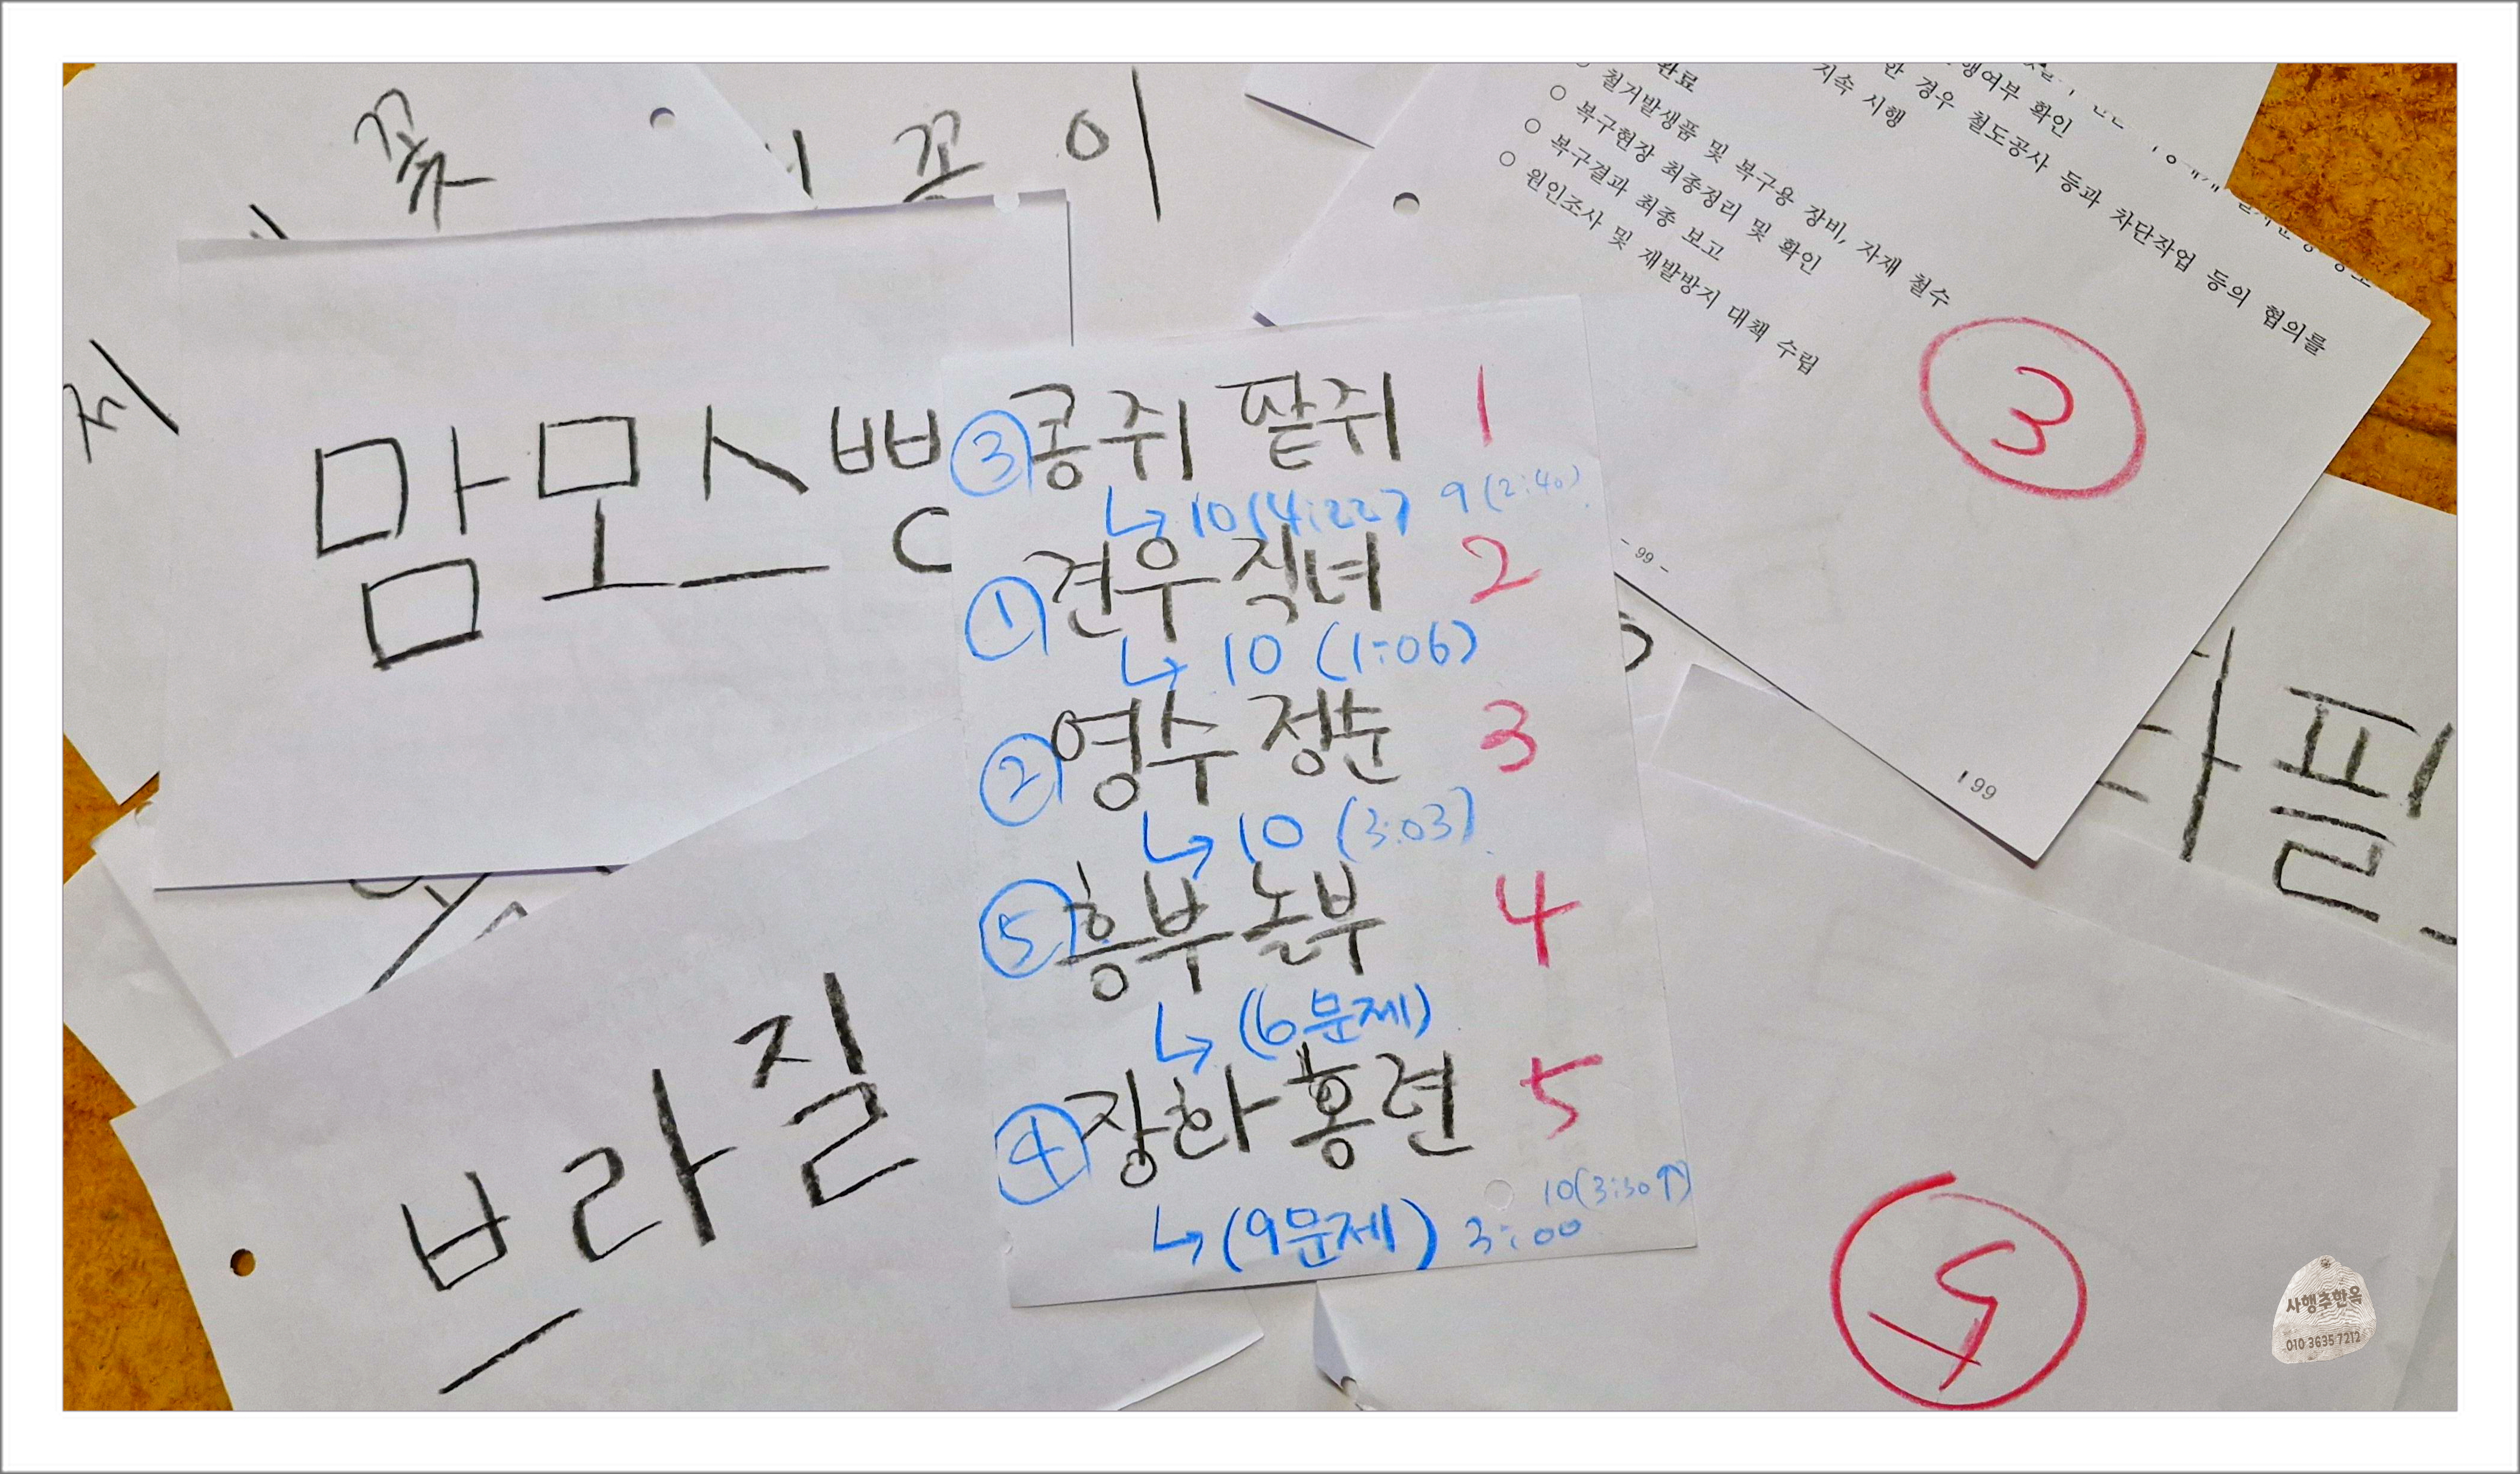 꽂
꼬이
지
완료
○ 철거발생품 및 복구용 장비, 자재 철수
○ 복구현장 최종정리 및 확인
○ 복구결과 최종 보고
○ 원인조사 및 재발방지 대책 수립
행여부 확인
한 경우 철도공사 등과 차단작업 등의 협의를
지속 시행
3
- 99 -
199
맘모스빵
③ 콩쥐 팥쥐 1
↳ 10(4:22) 9(2:40)
① 견우 직녀 2
↳ 10 (1:06)
② 영수 정순 3
↳ 10 (3:03)
⑤ 흥부 놀부 4
↳ (6문제)
④ 장화 홍련 5
10(3:30↑)
↳ (9문제) 3:00
브라질
플
5
사행추한옥
010 3635 7212